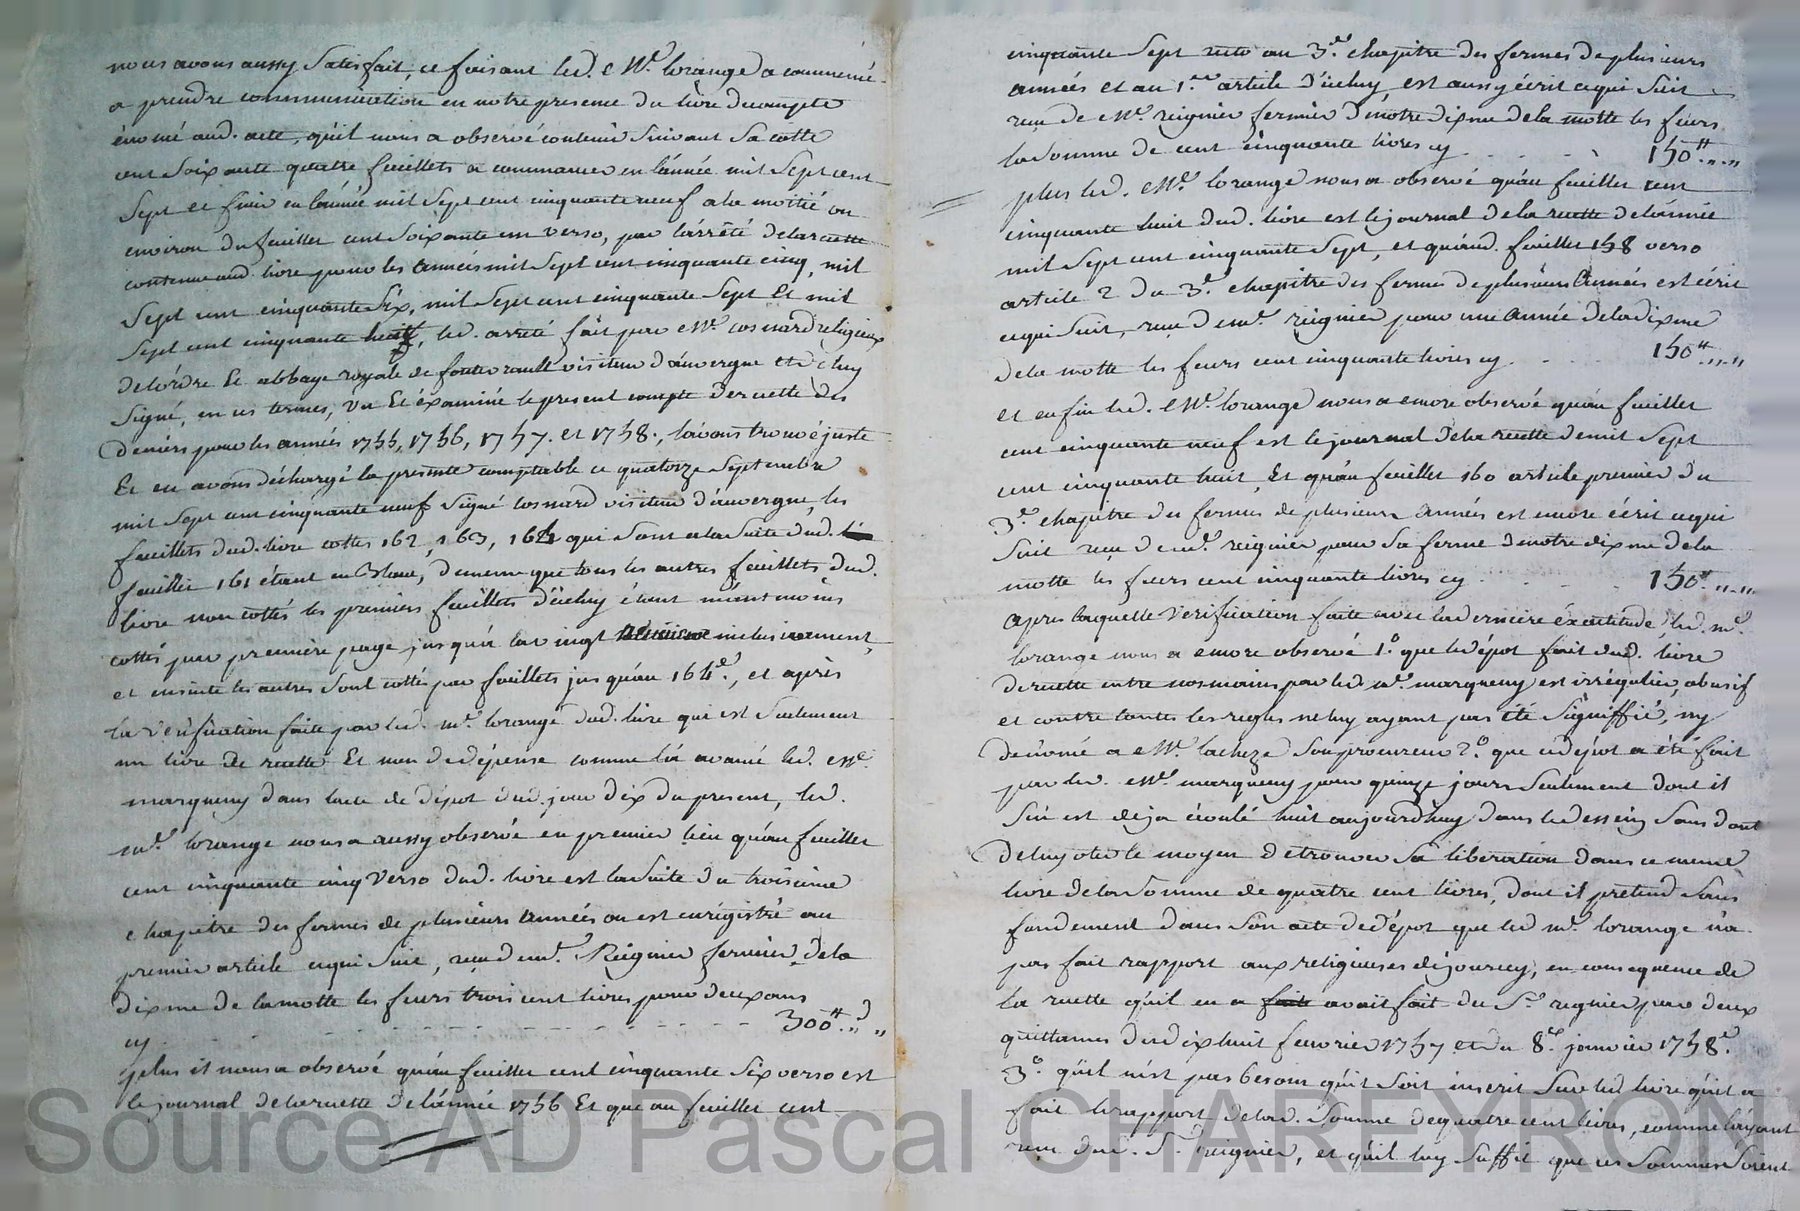 nous avons aussy satisfait, ce faisant led. Mr. lorange a commencé
a prendre communication en notre presence du livre de compte
énoncé aud. acte, qu'il nous a observé contenir suivant sa cotte
cent soixante quatre feuillets a commancer en l'année mil sept cent
sept et finir en l'année mil sept cent cinquante neuf a la moitié ou
environ du feuillet cent soixante un verso, par l'arrêté de la recette
contenue aud. livre pour les années mil sept cent cinquante cinq, mil
sept cent cinquante six, mil sept cent cinquante sept et mil
sept cent cinquante huit, led. arreté fait par Mr. cosnard religieux
de l'ordre et abbaye royale de fontevrault visiteur d'auvergne et de luy
signé, en ces termes, vu et éxaminé le present compte de recette des
deniers pour les années 1755, 1756, 1757. et 1758., l'avons trouvé juste
Et en avons déchargé la presente comptable ce quatorze septembre
mil sept cent cinquante neuf signé cosnard visiteur d'auvergne, les
feuillets dud. livre cottes 162, 163, 164 qui sont a la suite dud.
feuillet 161 étant en Blanc, de meme que tous les autres feuillets dud.
livre non cottés les premiers feuillets d'iceluy étant néantmoins
cottés par premiere page jusqu'a la vingt inclusivement,
et ensuite les autres sont cottés par feuillets jusqu'au 164e., et après
la vérification faite par led. mr. lorange dud. livre qui est seulement
un livre de recette Et non de dépense comme l'a avancé led. Me.
marqueny dans l'acte de dépot dud. jour dix du present, led.
mr. lorange nous a aussy observé en premier lieu qu'au feuillet
cent cinquante cinq verso dud. livre est la suite du troisieme
chapitre des fermes de plusieurs années ou est enrégistré au
premier article ce qui suit, reçu de mr. Reignier fermier de la
dixme de la motte les feurs trois cent livres pour deux ans
cy - - - - - - - - 300lt. „ d „
plus il nous a observé qu'au feuillet cent cinquante six verso est
le journal de la recette de l'année 1756 Et que au feuillet cent
cinquante sept recto au 3e. chapitre des fermes de plusieurs
années et au 1er. article d'iceluy est aussy écrit ce qui suit
reçu de Mr. reignier fermier de notre dixme de la motte les feurs
la somme de cent cinquante livres cy - - - 150lt. „ „
plus led. Mr. lorange nous a observé qu'au feuillet cent
cinquante huit dud. livre est le journal de la recette de l'année
mil sept cent cinquante sept, et qu'aud. feuillet 158 verso
article 2 du 3e. chapitre des fermes de plusieurs années est écrit
ce qui suit, reçu de mr. reignier pour une année de la dixme
de la motte les feurs cent cinquante livres cy - - - 150lt. „ „
et enfin led. Mr. lorange nous a encore observé qu'au feuillet
cent cinquante neuf est le journal de la recette de mil sept
cent cinquante huit, Et qu'au feuillet 160 article premier du
3e. chapitre des fermes de plusieurs années est encore écrit ce qui
suit reçu de mr. reignier pour sa ferme de notre dixme de la
motte les feurs cent cinquante livres cy - - - 150lt. „ „
apres laquelle vérification faite avec la derniere éxactitude, led. mr.
lorange nous a encore observé 1o. que le dépot fait dud. livre
de recette entre nos mains par led. mr. marqueny est irrégulier, abusif
et contre toutes les regles ne luy ayant pas été signiffié, ny
dénoncé a Mr. lacheze son procureur 2o. que ce dépot a été fait
par led. Mr. marqueny pour quinze jours seulement dont il
s'en est deja écoulé huit aujourd'huy dans le dessein sans dout
de luy oter le moyen de trouver sa liberation dans ce meme
livre de la somme de quatre cent livres, dont il prétend sans
fondement dans son acte de dépot que led. mr. lorange n'a
pas fait rapport aux religieuses de joursey, en consequence de
la recette qu'il en a avait fait du Sr. regnier par deux
quittances du dix huit fevrier 1757 et du 8e. janvier 1758.
3o. qu'il n'est pas besoin qu'il soit inscrit sur led. livre qu'il a
fait le rapport de lad. somme de quatre cent livres, comme l'ayant
reçu dud. Sr. reignier, et qu'il luy suffit que ces sommes soient
Source AD Pascal CHAREYRON